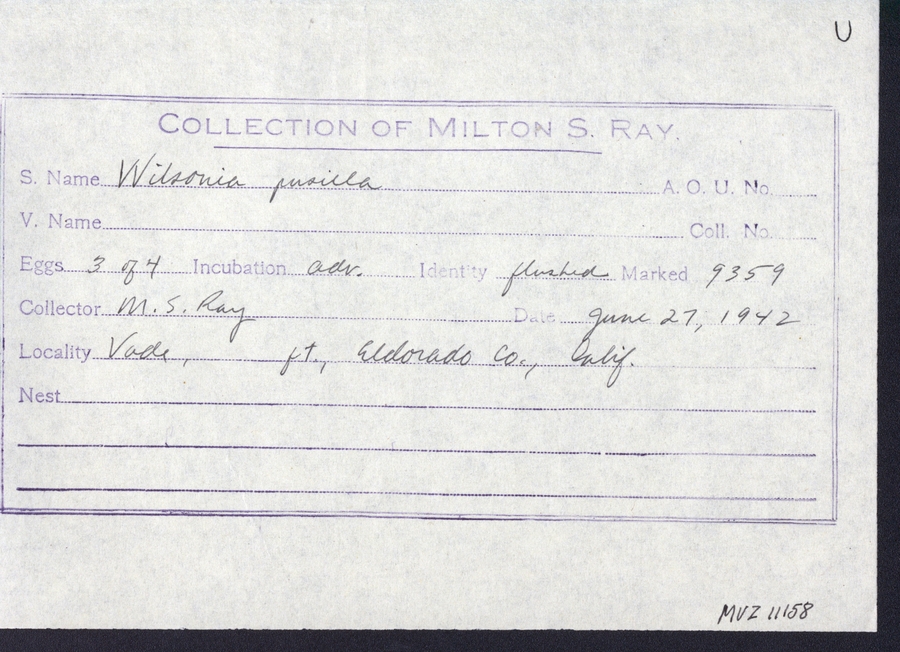 U
COLLECTION OF MILTON S. RAY.
S. Name Wilsonia pusilla A. O. U. No.
V. Name Coll. No.
Eggs 3 of 4 Incubation adv. Identity flushed Marked 9359
Collector M. S. Ray Date June 27, 1942
Locality Vade, ft., Eldorado Co., Calif.
Nest
MVZ 11158